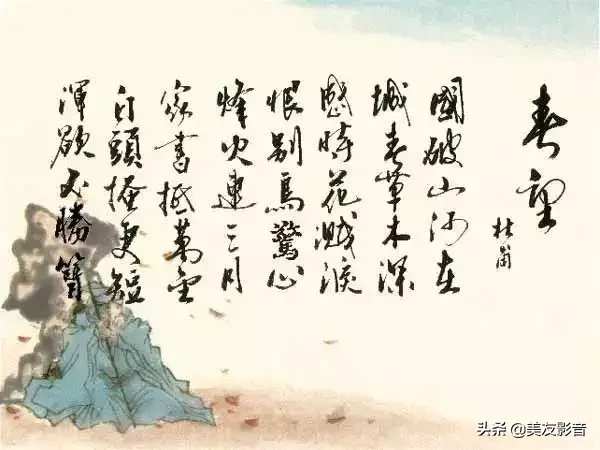 春望
杜甫
國破山河在
城春草木深
感時花濺淚
恨别鳥驚心
烽火連三月
家書抵萬金
白頭搔更短
渾欲不勝簪
头条 @美友影音